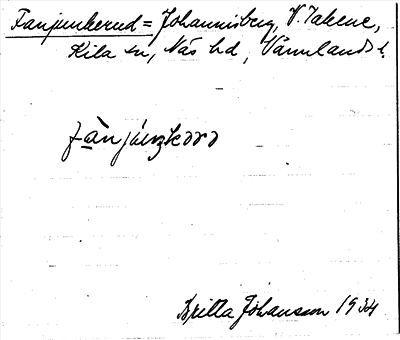 Fanjunkerud = Johannisberg, V. Takene,
Kila sn, Näs hd, Värmlands l.
Britta Johansson 1934